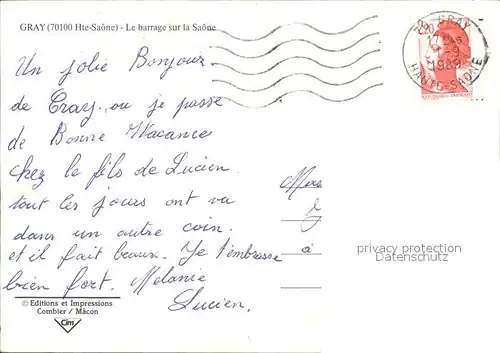 GRAY (70100 Hte-Saône) - Le barrage sur la Saône
2,20
GRAY
1989
HAUTE-SAÔNE
Un jolie Bonjour
de Gray. ou je passe
de Bonne Vacance
chez le fils de Lucien.
tout les jours ont va
dans un autre coin.
et il fait beaux. Je t'embrasse
bien fort. Mélanie
Lucien.
à
privacy protection
Datenschutz
© Editions et Impressions
Combier / Mâcon
Cim